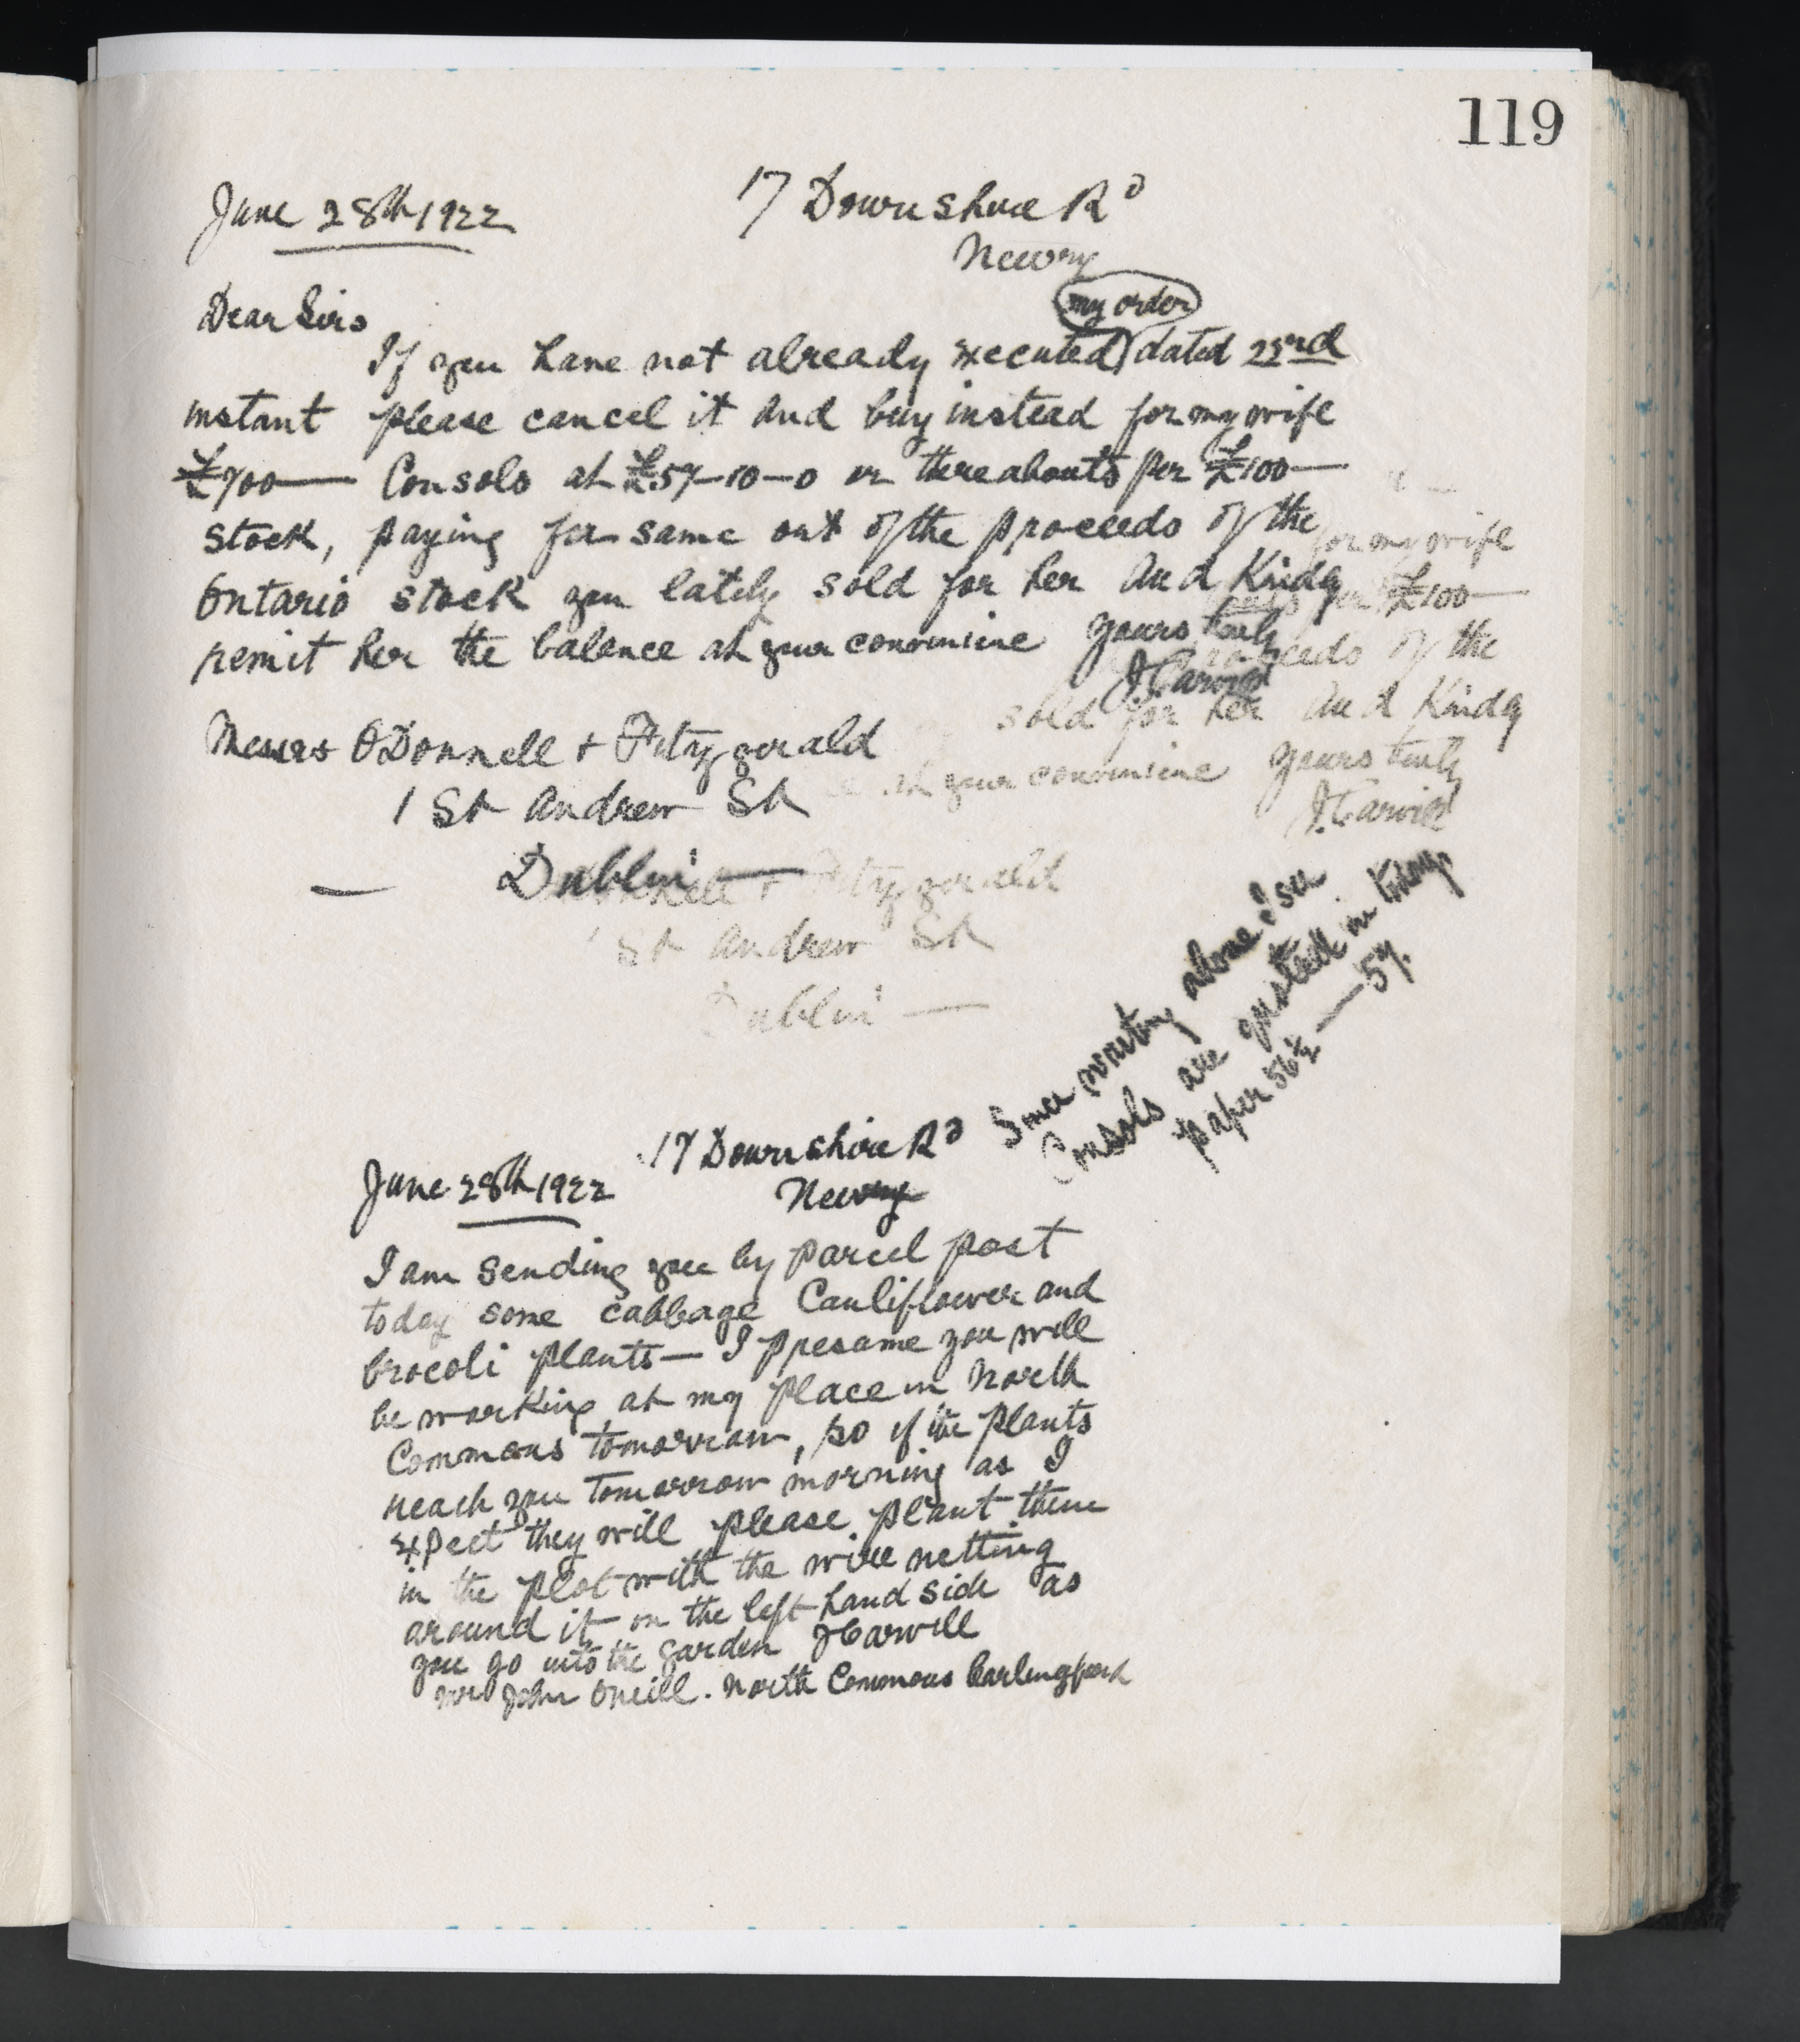 119
June 28th 1922
17 Downshire Rd
Newry
Dear Sirs
my order
If you have not already executed dated 23rd
instant please cancel it and buy instead for my wife
£700 — Consols at £57-10-0 or thereabouts per £100 —
stock, paying for same out of the proceeds of the
Ontario stock you lately sold for her and Kindly
remit her the balance at your convenience yours truly
J Carvill
Messrs O'Donnell + Fitzgerald
1 St Andrew St
Dublin —
for my wife
£100 —
proceeds of the
sold for her and Kindly
at your convenience yours truly
J. Carvill
Fitzgerald
1 St Andrew St
Dublin —
Since writing above I see
Consols are quoted in today
paper 56½ — 57.
17 Downshire Rd
June 28th 1922
Newry
I am sending you by parcel post
today some cabbage Cauliflower and
brocoli plants — I presume you will
be working at my place in North
Commons tomorrow, so if the plants
reach you tomorrow morning as I
expect they will please plant them
in the plot with the wire netting
around it on the left hand side as
you go into the garden J Carvill
Mr John Oneill. North Commons Carlingford